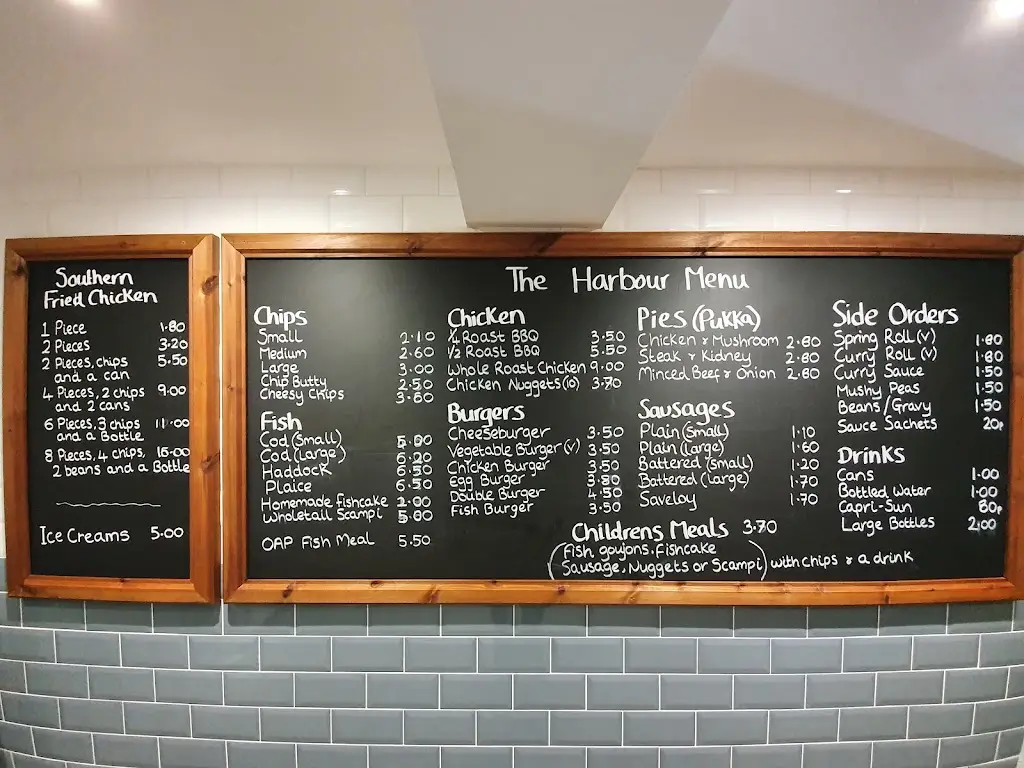 Southern
Fried Chicken
1 Piece 1.80
2 Pieces 3.20
2 Pieces, chips 5.50
and a can
4 Pieces, 2 chips 9.00
and 2 cans
6 Pieces, 3 chips 11.00
and a Bottle
8 Pieces, 4 chips, 15.00
2 beans and a Bottle
Ice Creams 5.00
The Harbour Menu
Chips
Small 2.10
Medium 2.60
Large 3.00
Chip Butty 2.50
Cheesy Chips 3.60
Fish
Cod (Small)
Cod (Large) 6.20
Haddock 6.50
Plaice 6.50
Homemade Fishcake 2.00
Wholetail Scampi
OAP Fish Meal 5.50
Chicken
1/4 Roast BBQ 3.50
1/2 Roast BBQ 5.50
Whole Roast Chicken 9.00
Chicken Nuggets (10) 3.70
Burgers
Cheeseburger 3.50
Vegetable Burger (v) 3.50
Chicken Burger 3.50
Egg Burger 3.80
Double Burger 4.50
Fish Burger 3.50
Pies (Pukka)
Chicken & Mushroom 2.80
Steak & Kidney 2.80
Minced Beef & Onion 2.80
Sausages
Plain (Small) 1.10
Plain (Large) 1.60
Battered (Small) 1.20
Battered (Large) 1.70
Saveloy 1.70
Side Orders
Spring Roll (v) 1.80
Curry Roll (v) 1.80
Curry Sauce 1.50
Mushy Peas 1.50
Beans/Gravy 1.50
Sauce Sachets 20p
Drinks
Cans 1.00
Bottled Water 1.00
Capri-Sun 80p
Large Bottles 2.00
Childrens Meals 3.70
(Fish goujons, Fishcake
Sausage, Nuggets or Scampi) with chips & a drink